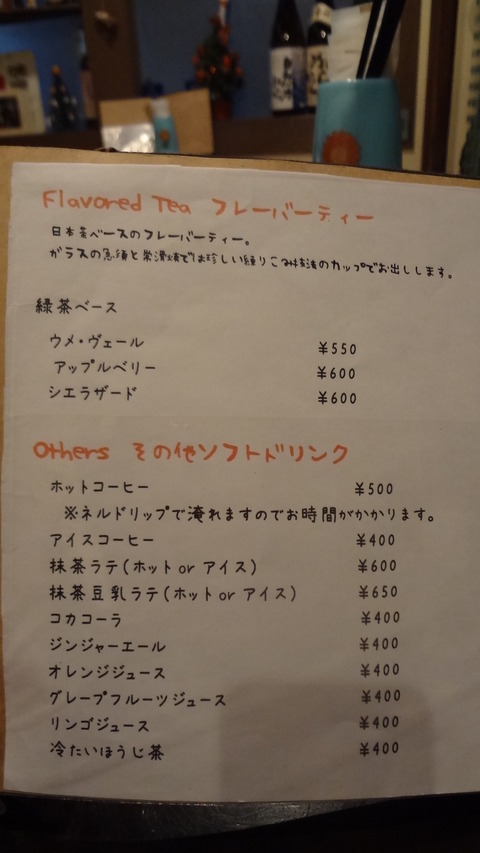 Flavored Tea フレーバーティー
日本茶ベースのフレーバーティー。
ガラスの急須と常滑焼では珍しい練りこみ技法のカップでお出しします。
緑茶ベース
ウメ・ヴェール ¥550
アップルベリー ¥600
シエラザード ¥600
Others その他ソフトドリンク
ホットコーヒー ¥500
※ネルドリップで淹れますのでお時間がかかります。
アイスコーヒー ¥400
抹茶ラテ(ホット or アイス) ¥600
抹茶豆乳ラテ(ホット or アイス) ¥650
コカコーラ ¥400
ジンジャーエール ¥400
オレンジジュース ¥400
グレープフルーツジュース ¥400
リンゴジュース ¥400
冷たいほうじ茶 ¥400